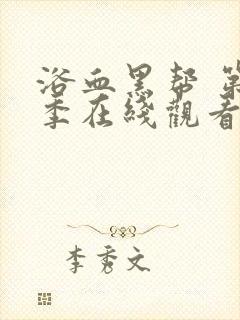 浴血黑帮 第
季在线觀看
李秀文